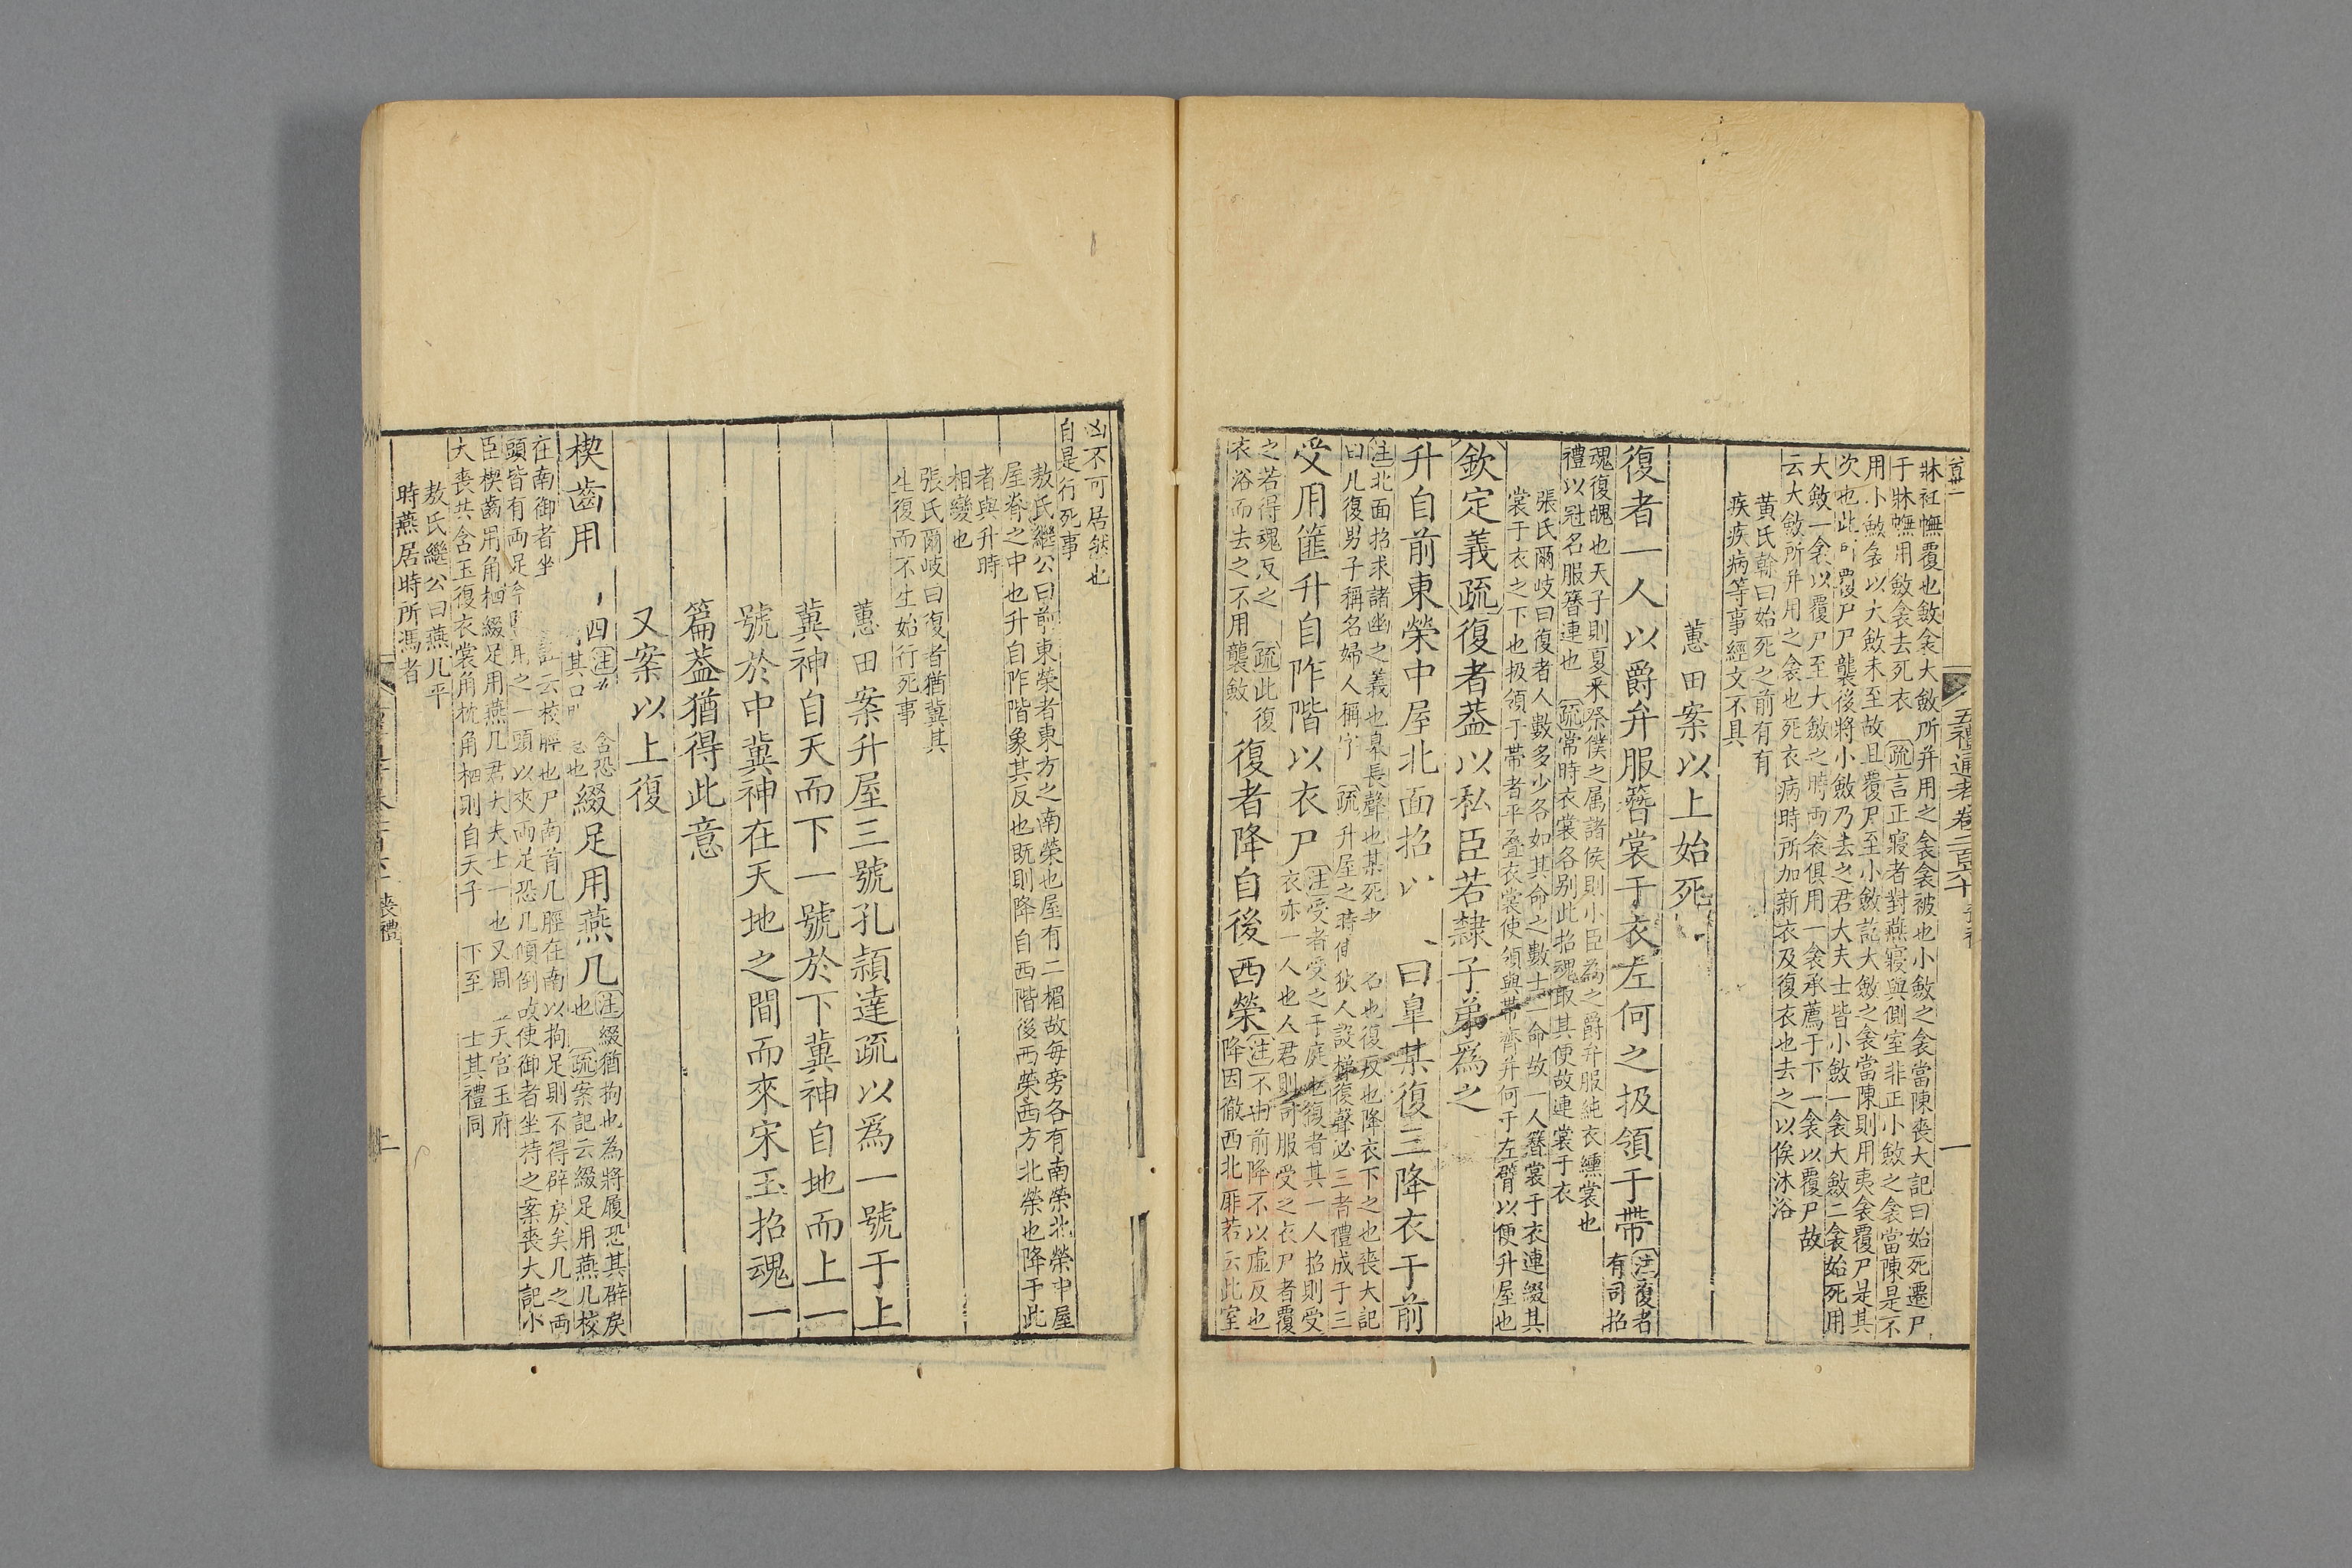 五禮通考卷二百六十
牀衽幠覆也斂衾大斂所幷用之衾衾被也小斂之衾當陳喪大記曰始死遷尸
于牀幠用斂衾去死衣 疏言正寢者對燕寢與側室非正小斂之衾當陳是不
用小斂衾以大斂未至故且覆尸至小斂訖大斂之衾當陳則用夷衾覆尸是其
次也此 覆尸尸襲後將小斂乃去之君大夫士皆小斂一衾大斂二衾始死用
大斂一衾以覆尸至大斂之時兩衾俱用一衾承薦于下一衾以覆尸故
云大斂所幷用之衾也死衣病時所加新衣及復衣也去之以俟沐浴
黃氏榦曰始死之前有有
疾疾病等事經文不具
蕙田案以上始死
復者一人以爵弁服簪裳于衣左何之扱領于帶
注復者
有司招
魂復魄也天子則夏采祭僕之屬諸侯則小臣為之爵弁服純衣纁裳也
禮以冠名服簪連也 疏常時衣裳各別此招魂取其便故連裳于衣
張氏爾岐曰復者人數多少各如其命之數士一命故一人簪裳于衣連綴其
裳于衣之下也扱領于帶者平疊衣裳使領與帶齊幷何于左臂以便升屋也
欽定義疏復者葢以私臣若隸子弟爲之
升自前東榮中屋北面招以 曰皐某復三降衣于前
注北面招求諸幽之義也皐長聲也某死 名也復反也降衣下之也喪大記
曰凡復男子稱名婦人稱字 疏升屋之時 狄人設梯復聲必三者禮成于三
受用篚升自阼階以衣尸
注受者受之于庭也復者其一人招則受
衣亦一人也人君則司服受之衣尸者覆
之若得魂反之 疏此復
衣浴而去之不用襲斂
復者降自後西榮
注不由前降不以虛反也
降因徹西北厞若云此室
凶不可居然也
自是行死事
敖氏繼公曰前東榮者東方之南榮也屋有二楣故每旁各有南榮北榮中屋
屋脊之中也升自阼階象其反也既則降自西階後西榮西方北榮也降于此
者與升時
相變也
張氏爾岐曰復者猶冀其
生復而不生始行死事
蕙田案升屋三號孔頴達疏以爲一號于上
冀神自天而下一號於下冀神自地而上一
號於中冀神在天地之間而來宋玉招魂一
篇葢猶得此意
又案以上復
楔齒用 四
注
含恐
其口 也
綴足用燕几
注綴猶拘也為將屨恐其辟戾
也 疏案記云綴足用燕几校
在南御者坐 云校脛也尸南首几脛在南以拘足則不得辟戾矣几之兩
頭皆有兩足 用之一頭以夾兩足恐几傾倒故使御者坐持之案喪大記小
臣楔齒用角柶綴足用燕几君大夫士一也又周 天官玉府
大喪共含玉復衣裳角枕角柶則自天子 下至 士其禮同
敖氏繼公曰燕几平
時燕居時所馮者
喪禮
二